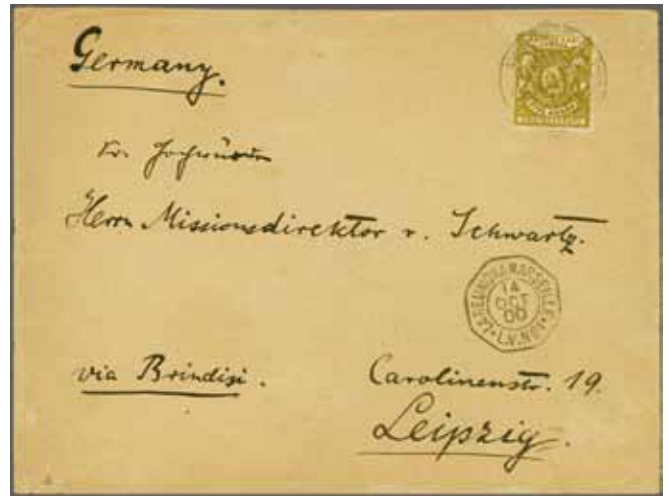 Germany.
Sr. Hochwürden
Herrn Missionsdirektor v. Schwartz.
LA REUNION A MARSEILLE
14
OCT
00
L.V. Nº 1
via Brindisi.
Carolinenstr. 19.
Leipzig.